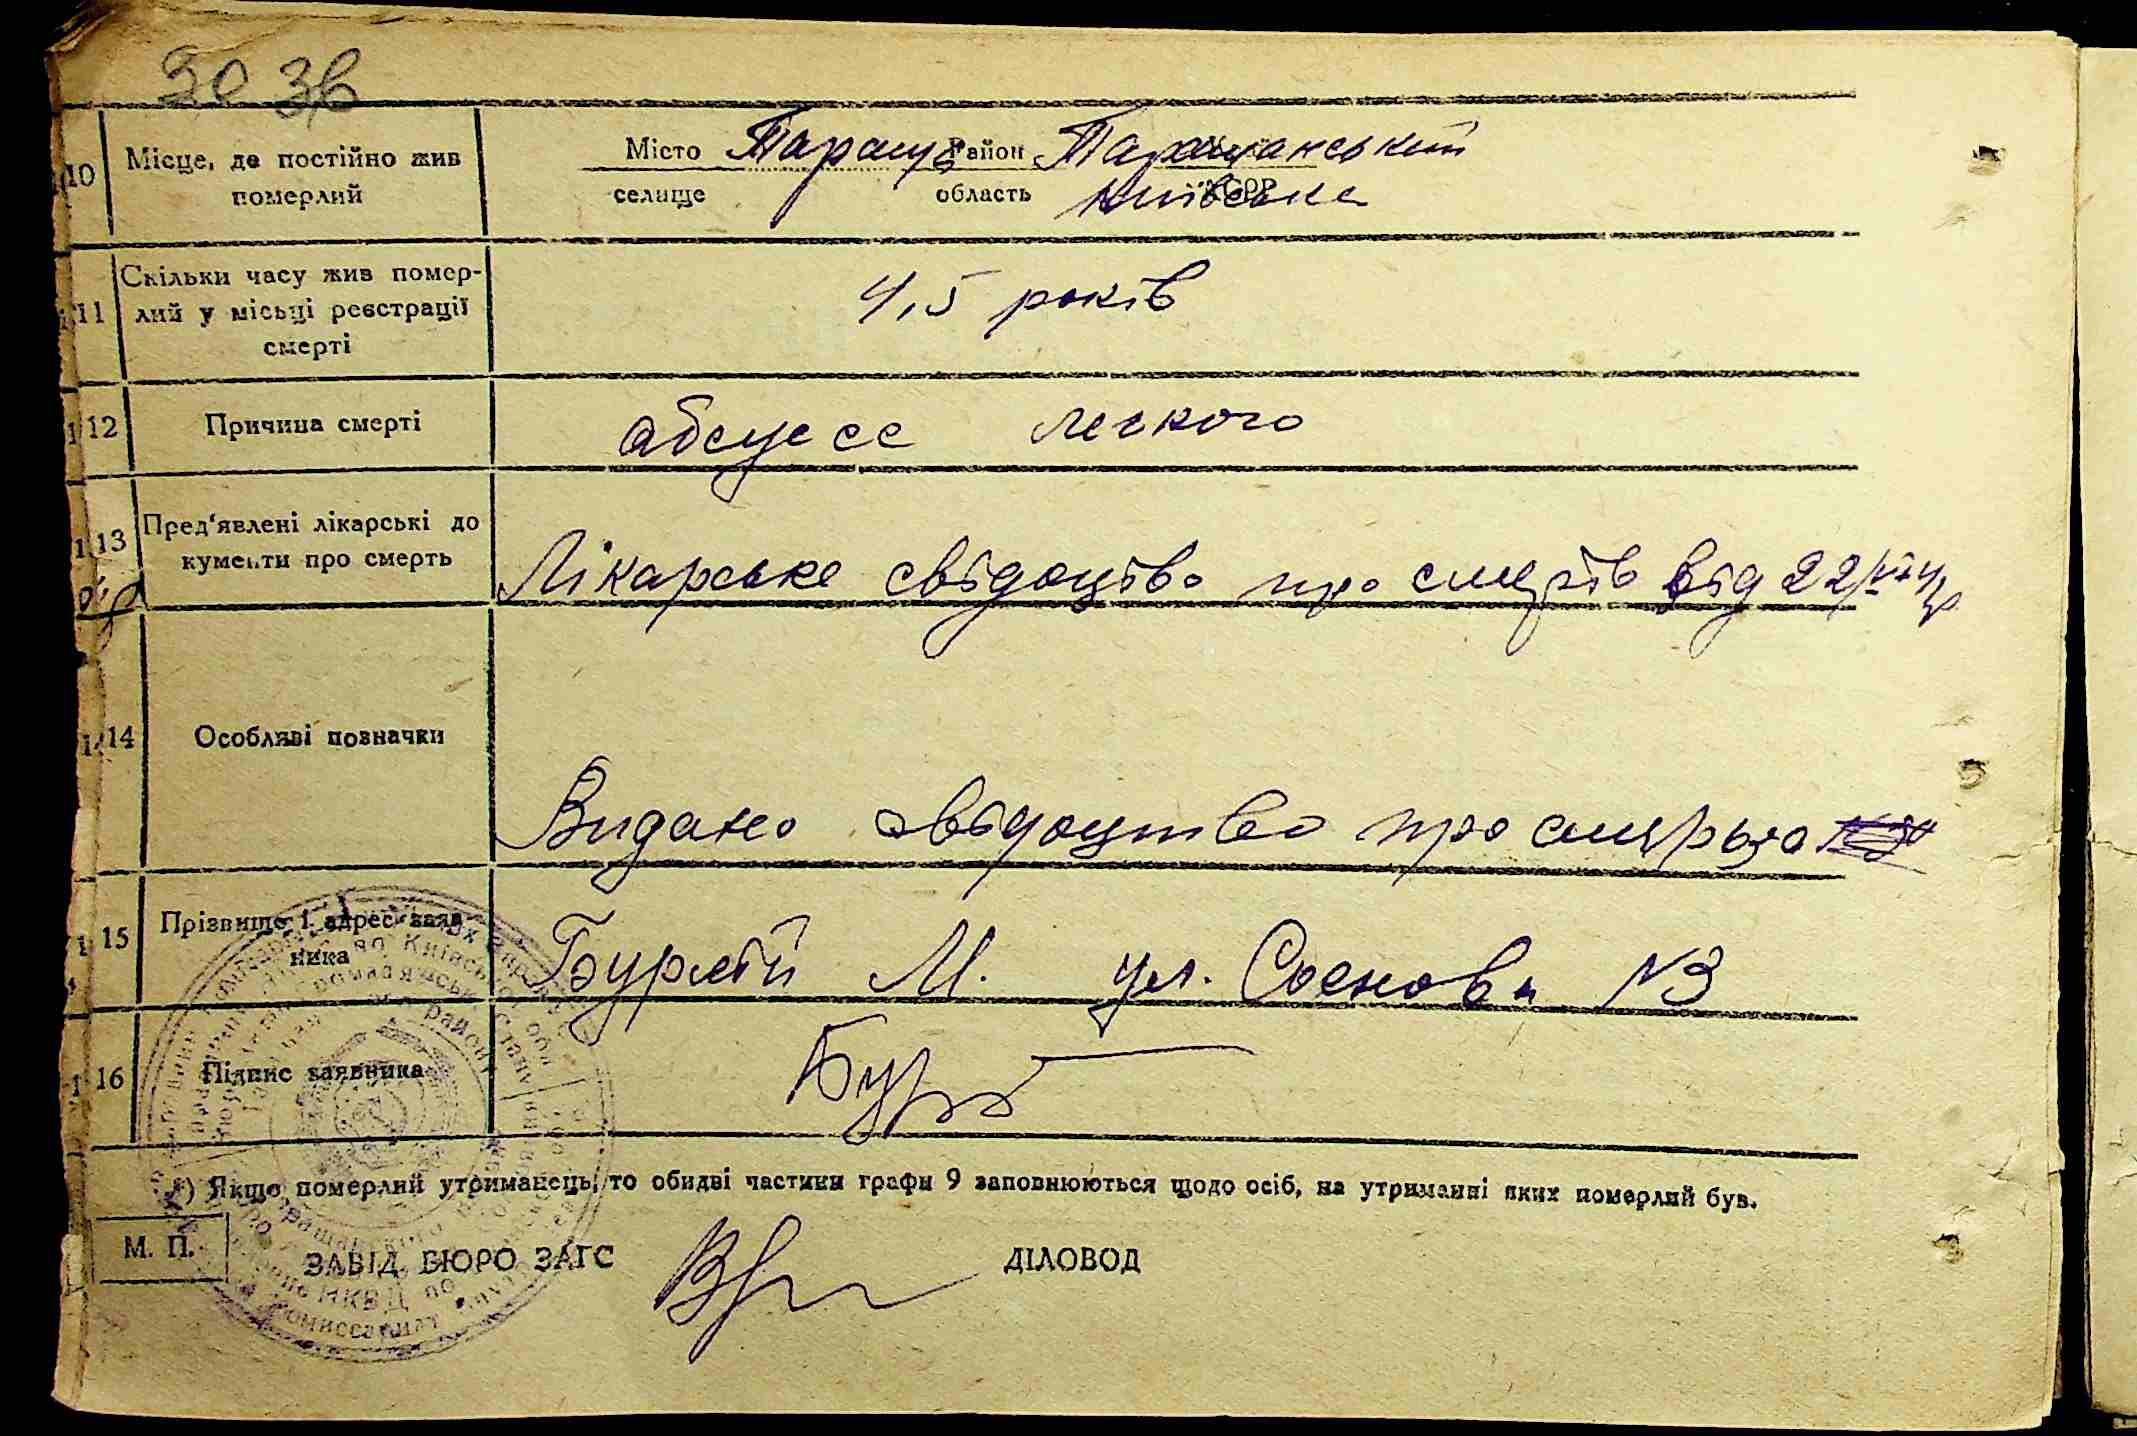 30 зв
10 Місце, де постійно жив померлий
Місто Тараща Район Таращанський
селище область Київська
11 Скільки часу жив помер-
лий у місьці реєстрації
смерті
4,5 років
12 Причина смерті
абсцесс легкого
13 Пред'явлені лікарські до
кументи про смерть
Лікарське свідоцтво про смерть від 22/
14 Особливі позначки
Видано свідоцтво про смерть
15 Прізвище і адрес заяв-
ника
М. ул. Соснова N3
16 Підпис заявника
*) Якщо померлий утриманець, то обидві частини графи 9 заповнюються щодо осіб, на утриманні яких померлий був.
М. П.
ЗАВІД. БЮРО ЗАГС ДІЛОВОД